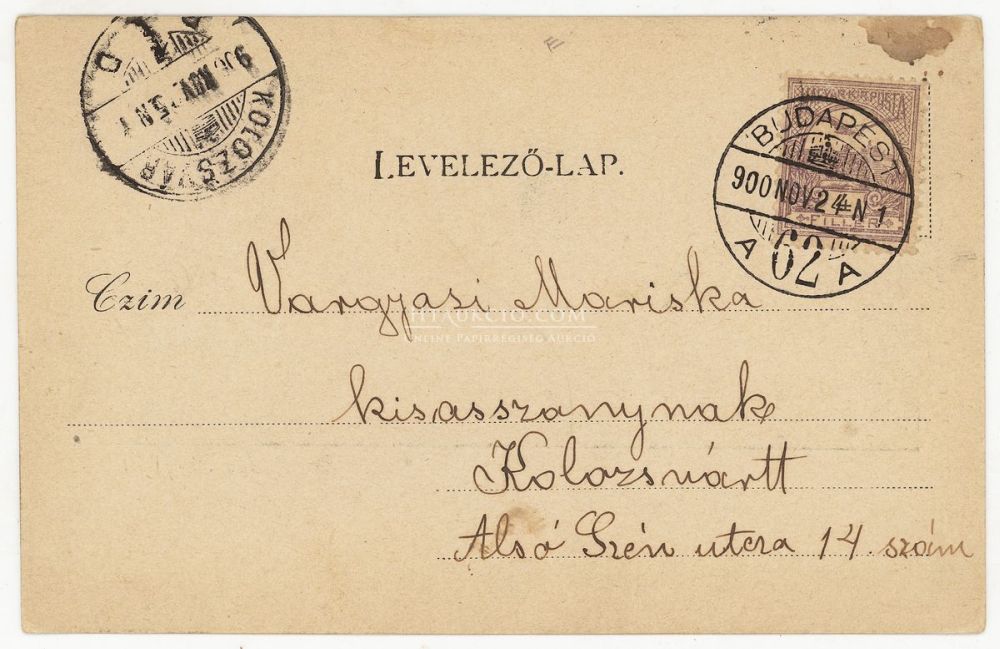 KOLOZSVÁR
900 NOV. 25 N
LEVELEZŐ-LAP.
MAGYAR KIR. POSTA
FILLÉR
BUDAPEST
900 NOV. 24 N 1
A 62 A
Czim Vargyasi Mariska
HITAUKCIO.COM
ONLINE PAPÍRRÉGISÉG AUKCIÓ
kisasszonynak
Kolozsvártt
Alsó Szén utcza 14. szám